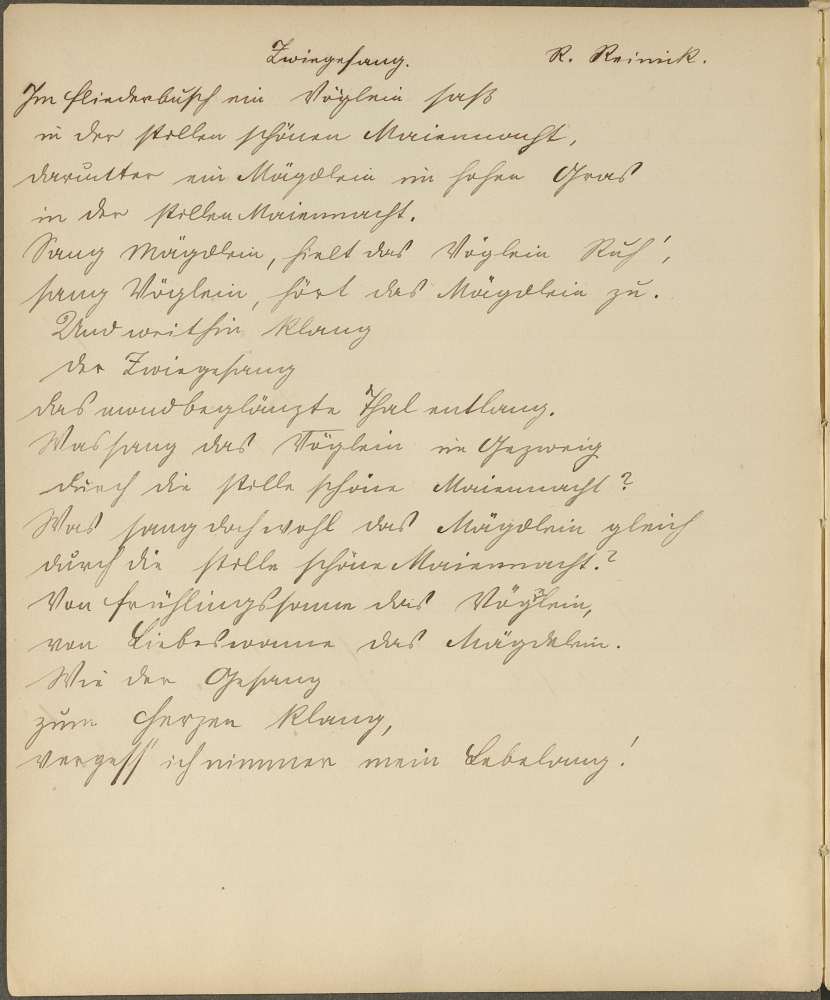 Zwiegesang. R. Reinick.
Im Fliederbusch ein Vöglein saß
in der stillen schönen Maiennacht,
darunter ein Mägdlein im hohen Gras
in der stillen Maiennacht.
Sang Mägdlein, hielt das Vöglein Ruh',
sang Vöglein, hört das Mägdlein zu.
Und weithin klang
der Zwiegesang
das mondbeglänzte Thal entlang.
Was sang das Vöglein im Gezweig
durch die stille schöne Maiennacht?
Was sang doch wohl das Mägdlein gleich
durch die stille schöne Maiennacht?
Von Frühlingssonne das Vöglein,
von Liebeswonne das Mägdelein.
Wie der Gesang
zum Herzen klang,
vergess' ich nimmer mein Lebelang!